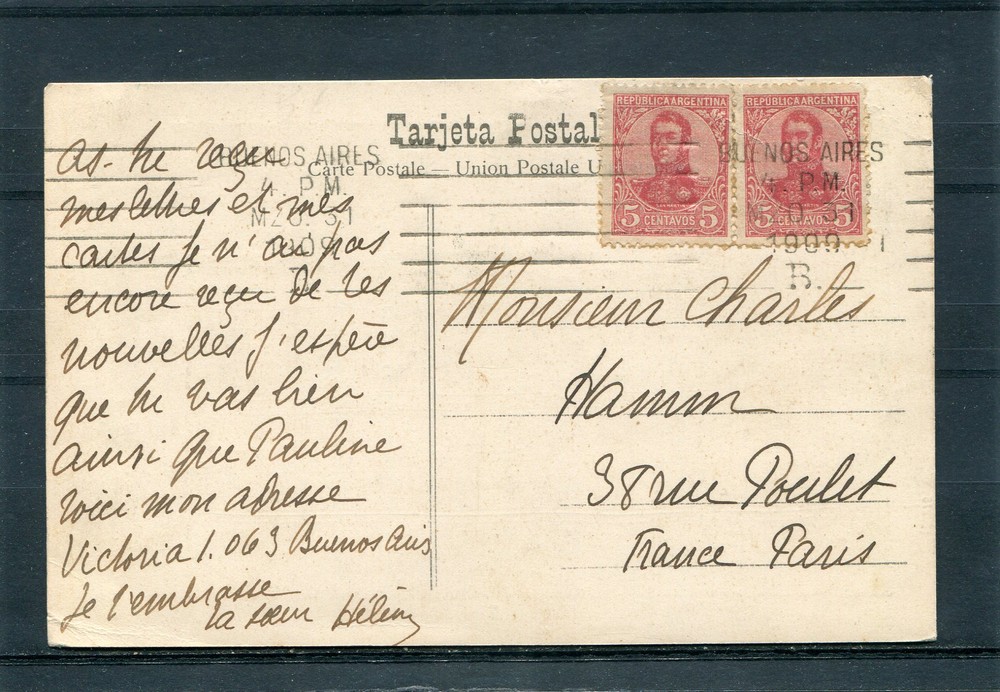 Tarjeta Postal
Carte Postale — Union Postale U
REPÚBLICA ARGENTINA
5 CENTAVOS 5
REPÚBLICA ARGENTINA
5 CENTAVOS 5
BUENOS AIRES
4. P.M.
MZO. 31
1909
B.
BUENOS AIRES
4. P.M.
MZO. 31
1909
B.
as-tu reçu
mes lettres et mes
cartes je n'ai pas
encore reçu de tes
nouvelles j'espère
que tu vas bien
ainsi que Pauline
voici mon adresse
Victoria 1.063 Buenos Aires
Je t'embrasse
ta sœur Hélène
Monsieur Charles
Hamm
38 rue Poulet
France Paris